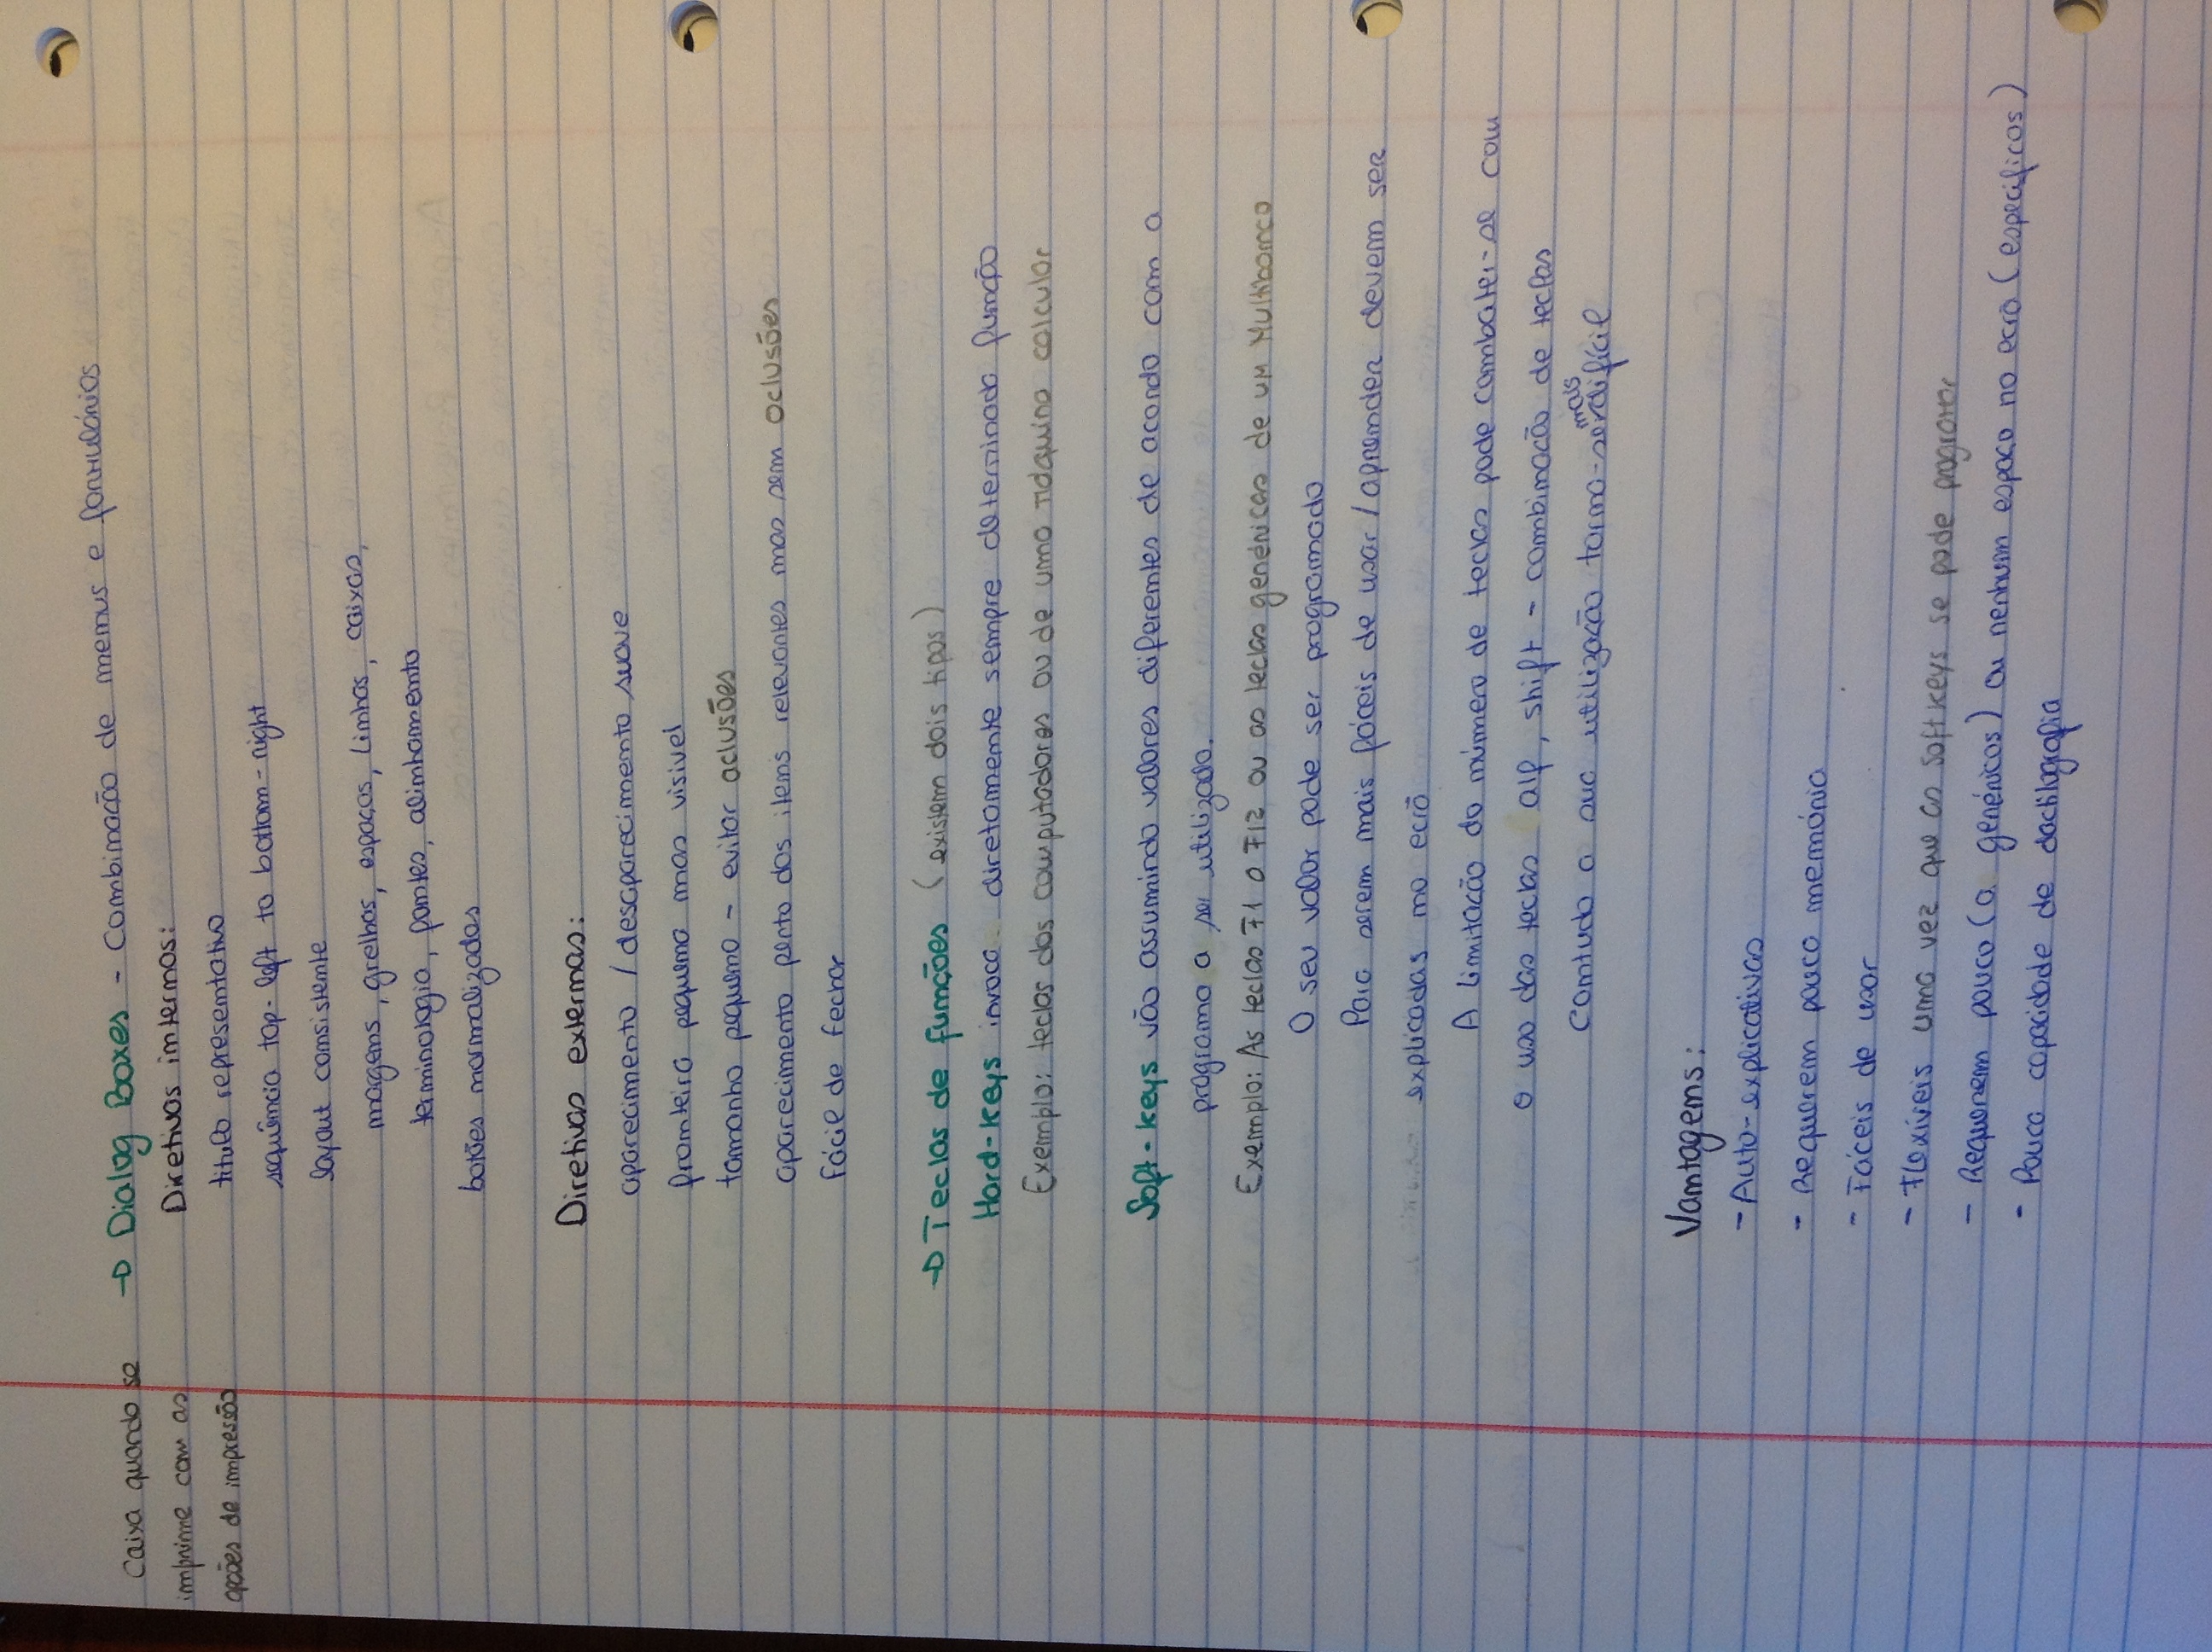 Caixa quando se
imprime com as
opções de impressão
→ Dialog Boxes - Combinação de menus e formulários
Diretivas internas:
titulo representativo
sequência top-left to bottom-right
layout consistente
margens, grelhas, espaços, linhas, caixas,
terminologia, fontes, alinhamento
botões normalizados
Diretivas externas:
aparecimento / desaparecimento suave
fronteira pequena mas visivel
tamanho pequeno - evitar oclusões
aparecimento perto dos items relevantes mas sem oclusões
fácil de fechar
→ Teclas de funções (existem dois tipos)
Hard-Keys invoca diretamente sempre determinada função
Exemplo: teclas dos computadores ou de uma máquina calcular
Soft-keys vão assumindo valores diferentes de acordo com o
programa a ser utilizado.
Exemplo: As teclas F1 a F12 ou as teclas genéricas de um Multibanco
O seu valor pode ser programado
Para serem mais fáceis de usar / aprender devem ser
explicadas no ecrã
A limitação do número de teclas pode combater-se com
o uso das teclas alf, shift - combinação de teclas
Contudo a sua utilização torna-se mais difícil
Vantagens:
- Auto-explicativas
- Requerem pouca memória
- Fáceis de usar
- Flexíveis uma vez que as softkeys se pode programar
- Requerem pouco (a genéricos) ou nenhum espaço no ecrã (específicos)
- Pouca capacidade de dactilografia